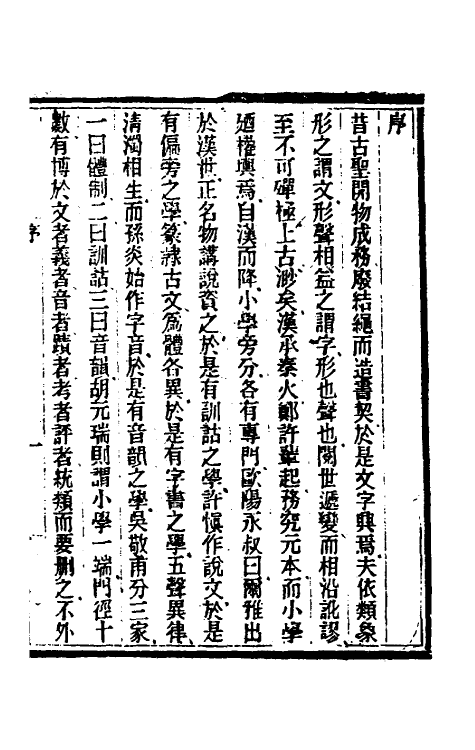 序
昔古聖開物成務廢結繩而造書契於是文字興焉夫依類象
形之謂文形聲相益之謂字形也聲也閱世遞變而相沿訛謬
至不可殫極上古渺矣漢承秦火鄭許輩起務究元本而小學
廼權輿焉自漢而降小學旁分各有專門歐陽永叔曰爾雅出
於漢世正名物講說資之於是有訓詁之學許慎作說文於是
有偏旁之學篆隷古文為體各異於是有字書之學五聲異律
清濁相生而孫炎始作字音於是有音韻之學吳敬甫分三家
一曰體制二曰訓詁三曰音韻胡元瑞則謂小學一端門徑十
數有博於文者義者音者蹟者考者評者統類而要刪之不外
序
一